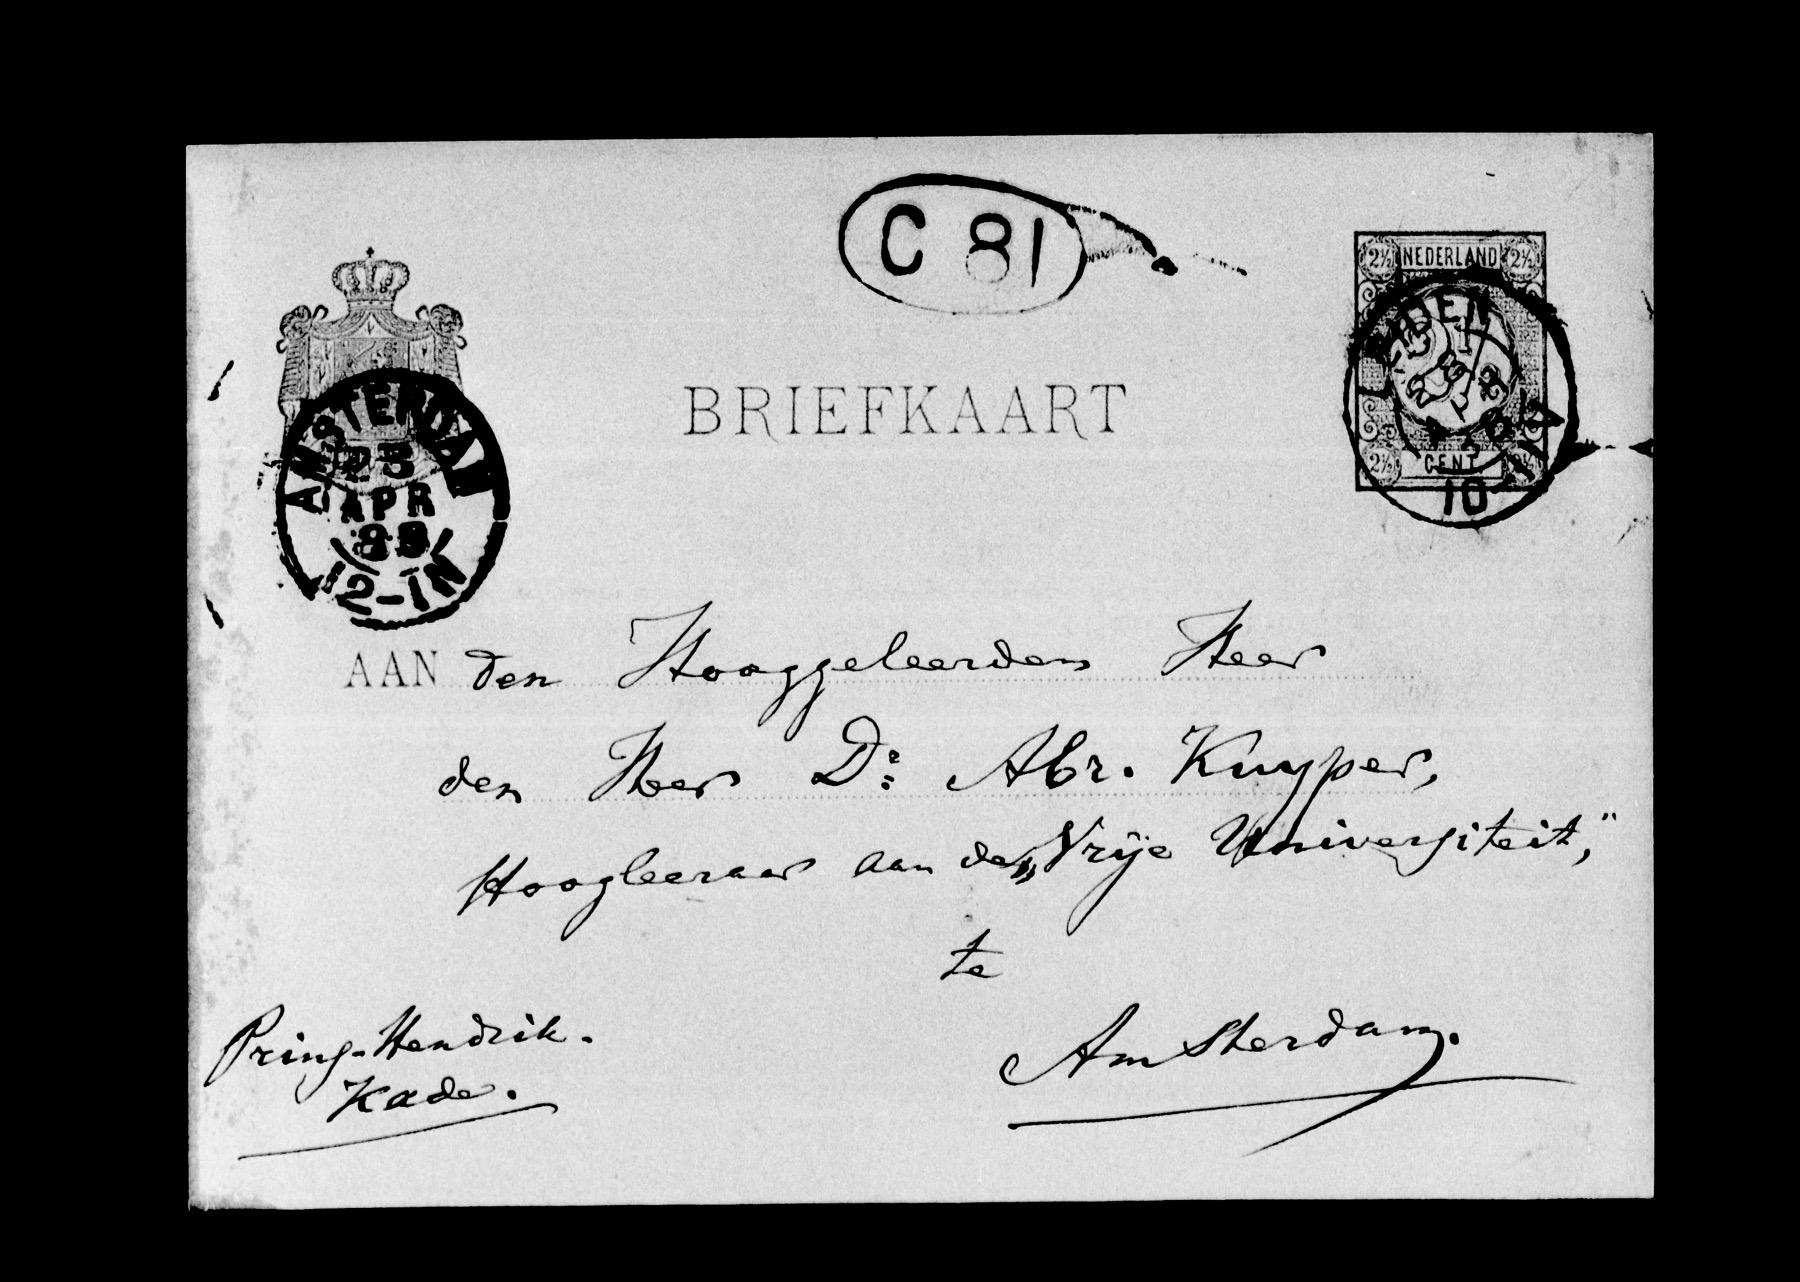 C 81
2½ NEDERLAND 2½
LEIDEN
10-11V
2½ CENT
BRIEFKAART
AMSTERDAM
23
APR
88
12-1N
AAN den Hooggeleerden Heer
den Heer Dr: Abr. Kuyper,
Hoogleeraar aan de „Vrije Universiteit,"
te
Amsterdam.
Prins-Hendrik-
Kade.